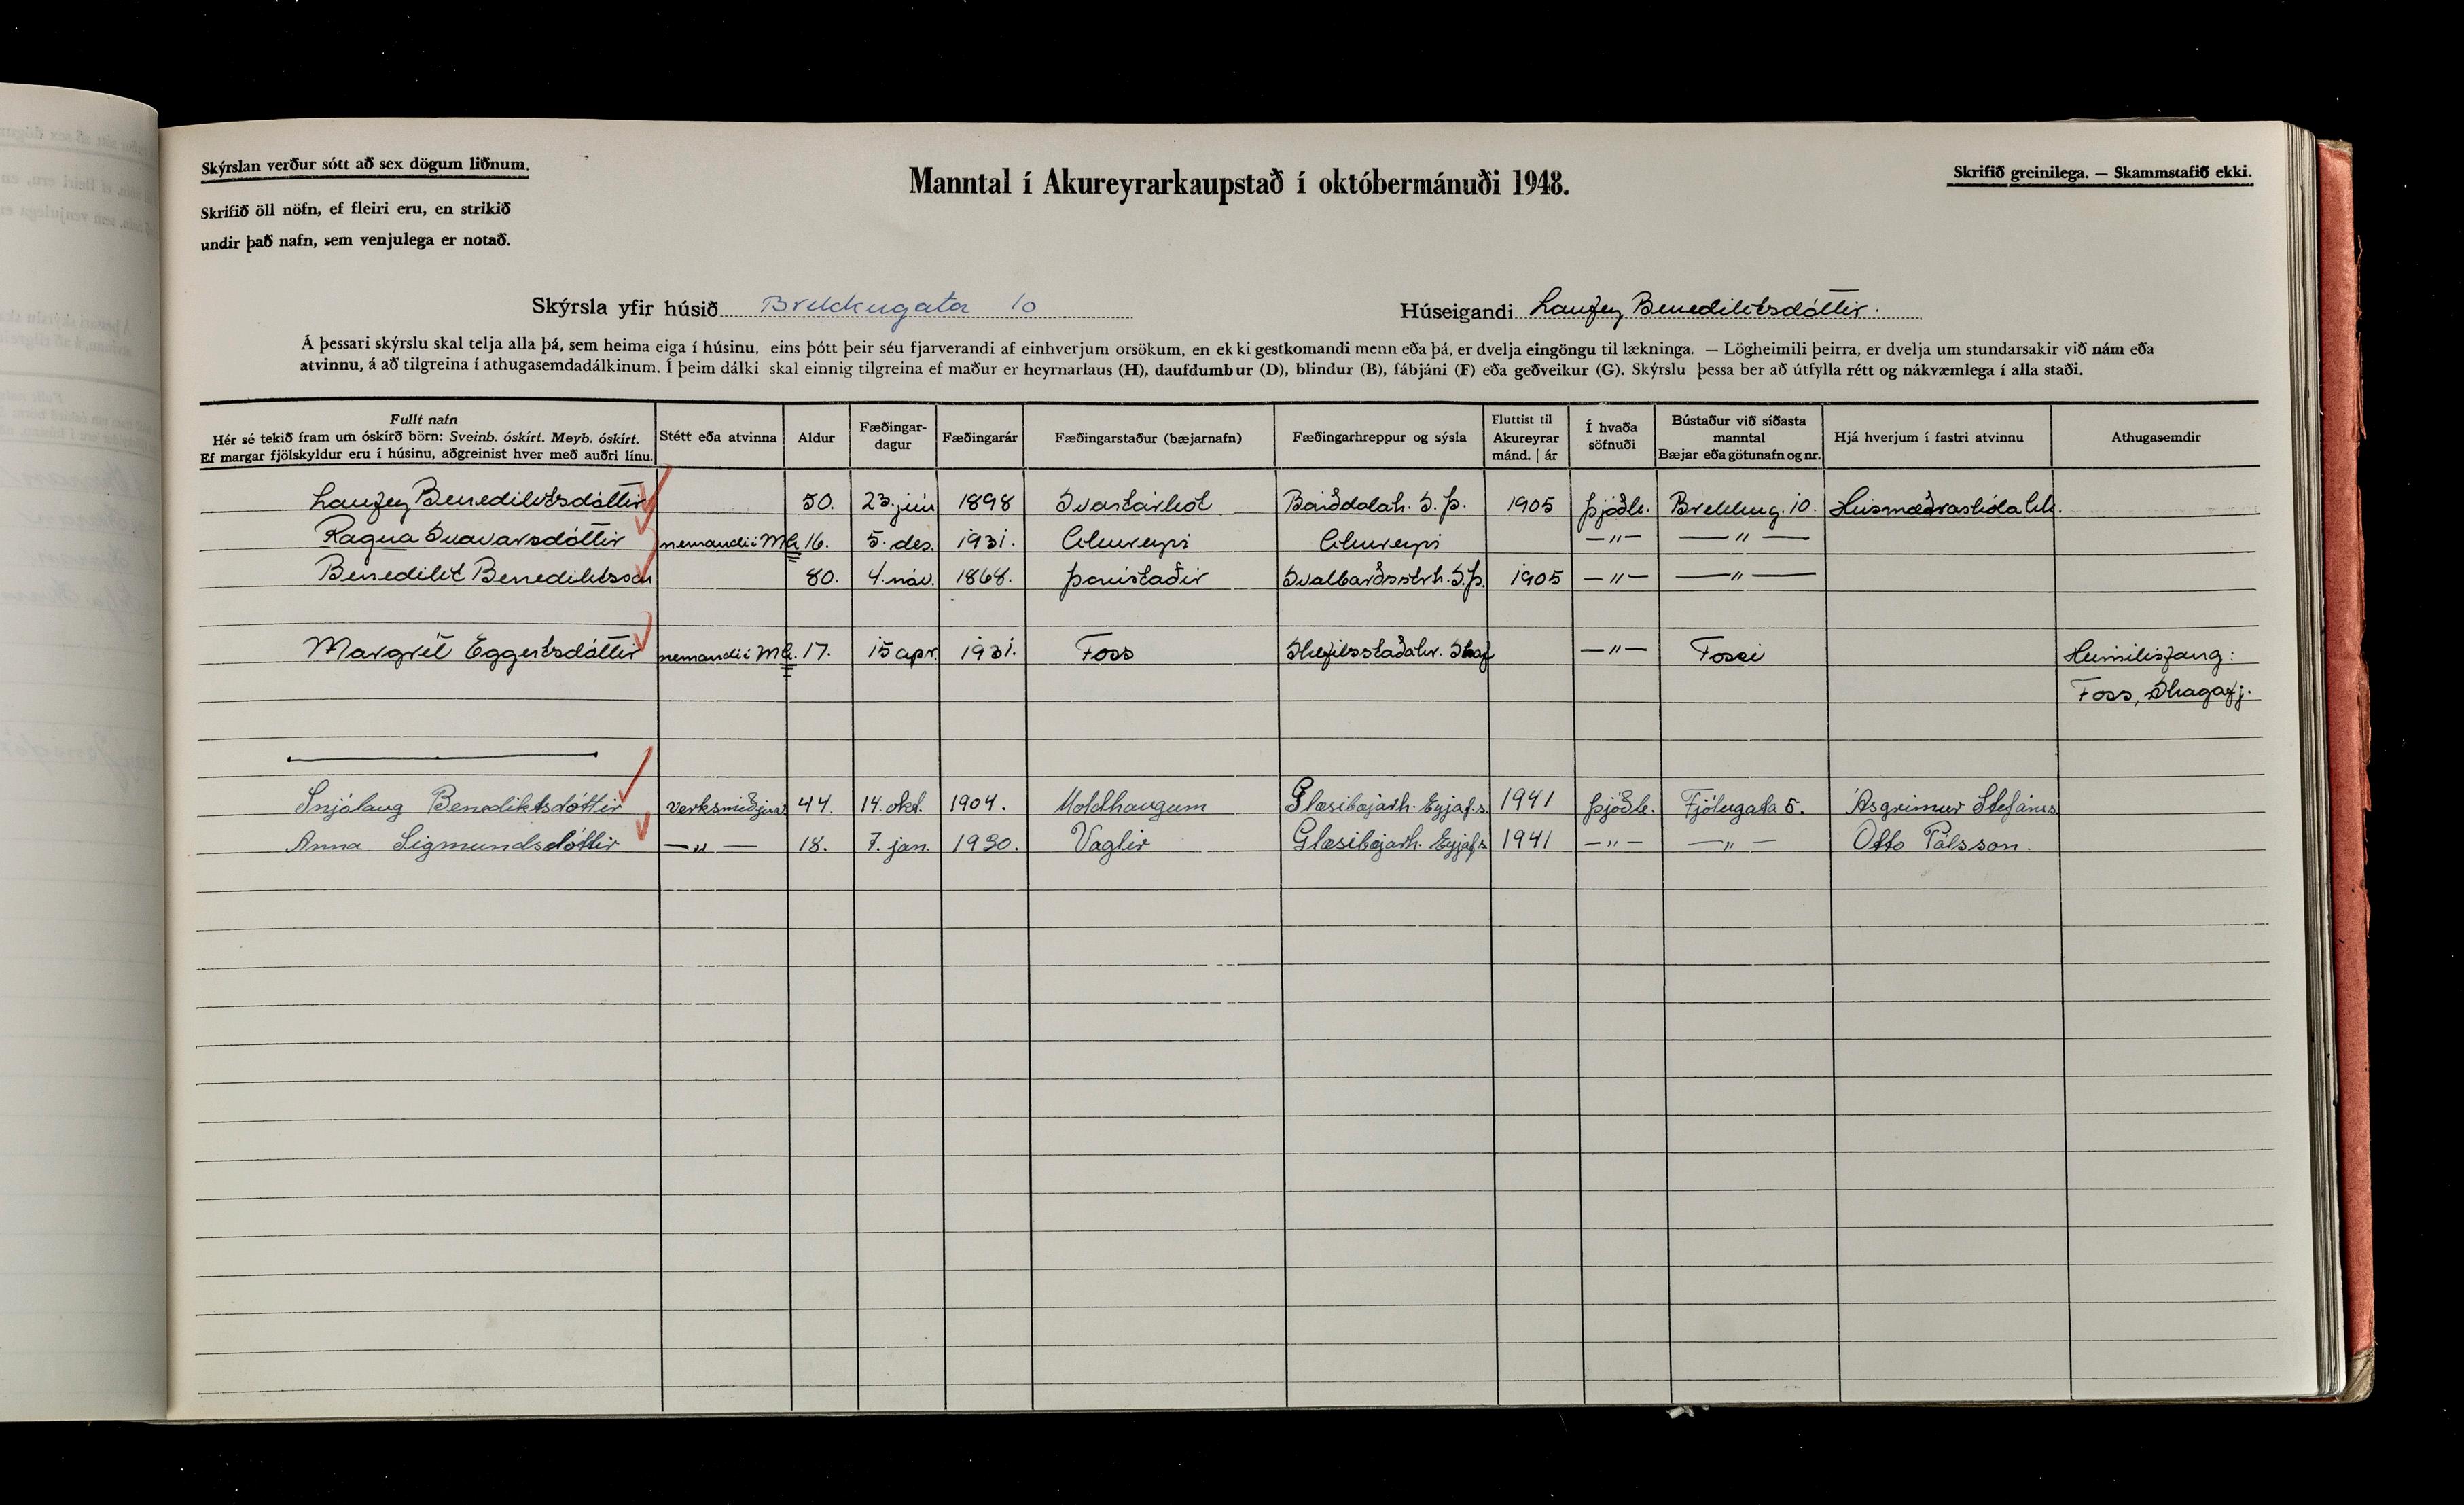 Skýrslan verður sótt að sex dögum liðnum.
Manntal í Akureyrarkaupstað í októbermánuði 1948.
Skrifið greinilega. — Skammstafið ekki.
Skrifið öll nöfn, ef fleiri eru, en strikið
undir það nafn, sem venjulega er notað.
Skýrsla yfir húsið Brekkugata 10 Húseigandi Laufey Benediktsdóttir.
Á þessari skýrslu skal telja alla þá, sem heima eiga í húsinu, eins þótt þeir séu fjarverandi af einhverjum orsökum, en ekki gestkomandi menn eða þá, er dvelja eingöngu til lækninga. — Lögheimili þeirra, er dvelja um stundarsakir við nám eða
atvinnu, á að tilgreina í athugasemdadálkinum. Í þeim dálki skal einnig tilgreina ef maður er heyrnarlaus (H), daufdumbur (D), blindur (B), fábjáni (F) eða geðveikur (G). Skýrslu þessa ber að útfylla rétt og nákvæmlega í alla staði.
Fullt nafn
Hér sé tekið fram um óskírð börn: Sveinb. óskírt. Meyb. óskírt.
Ef margar fjölskyldur eru í húsinu, aðgreinist hver með auðri línu.
Stétt eða atvinna
Aldur
Fæðingar-
dagur
Fæðingarár
Fæðingarstaður (bæjarnafn)
Fæðingarhreppur og sýsla
Fluttist til
Akureyrar
mánd. | ár
Í hvaða
söfnuði
Bústaður við síðasta
manntal
Bæjar eða götunafn og nr.
Hjá hverjum í fastri atvinnu
Athugasemdir
Laufey Benediktsdóttir 50. 23. jún 1898 Svartárkot Bárðdalah. S. Þ. 1905 Þjóðk. Brekkug. 10. Húsmæðraskóla Ak.
Ragna Svavarsdóttir nemandi í MA 16. 5. des. 1931. Akureyri Akureyri —"— —"—
Benedikt Benediktsson 80. 4. nóv. 1868. Þórisstaðir Svalbarðsstrh. S.Þ. 1905 —"— —"—
Margrét Eggertsdóttir nemandi í MA. 17. 15 apr. 1931. Foss Skefilsstaðahr. Skag —"— Fossi Heimilisfang:
Foss, Skagafj.
Snjólaug Benediktsdóttir verksmiðjuv 44. 14. okt. 1904. Moldhaugum Glæsibæjarh. Eyjaf.s. 1941 Þjóðk. Fjólugata 5. Ásgrímur Stefánss.
Anna Sigmundsdóttir —"— 18. 7. jan. 1930. Vaglir Glæsibæjarh. Eyjaf.s 1941 —"— —"— Otto Pálsson.